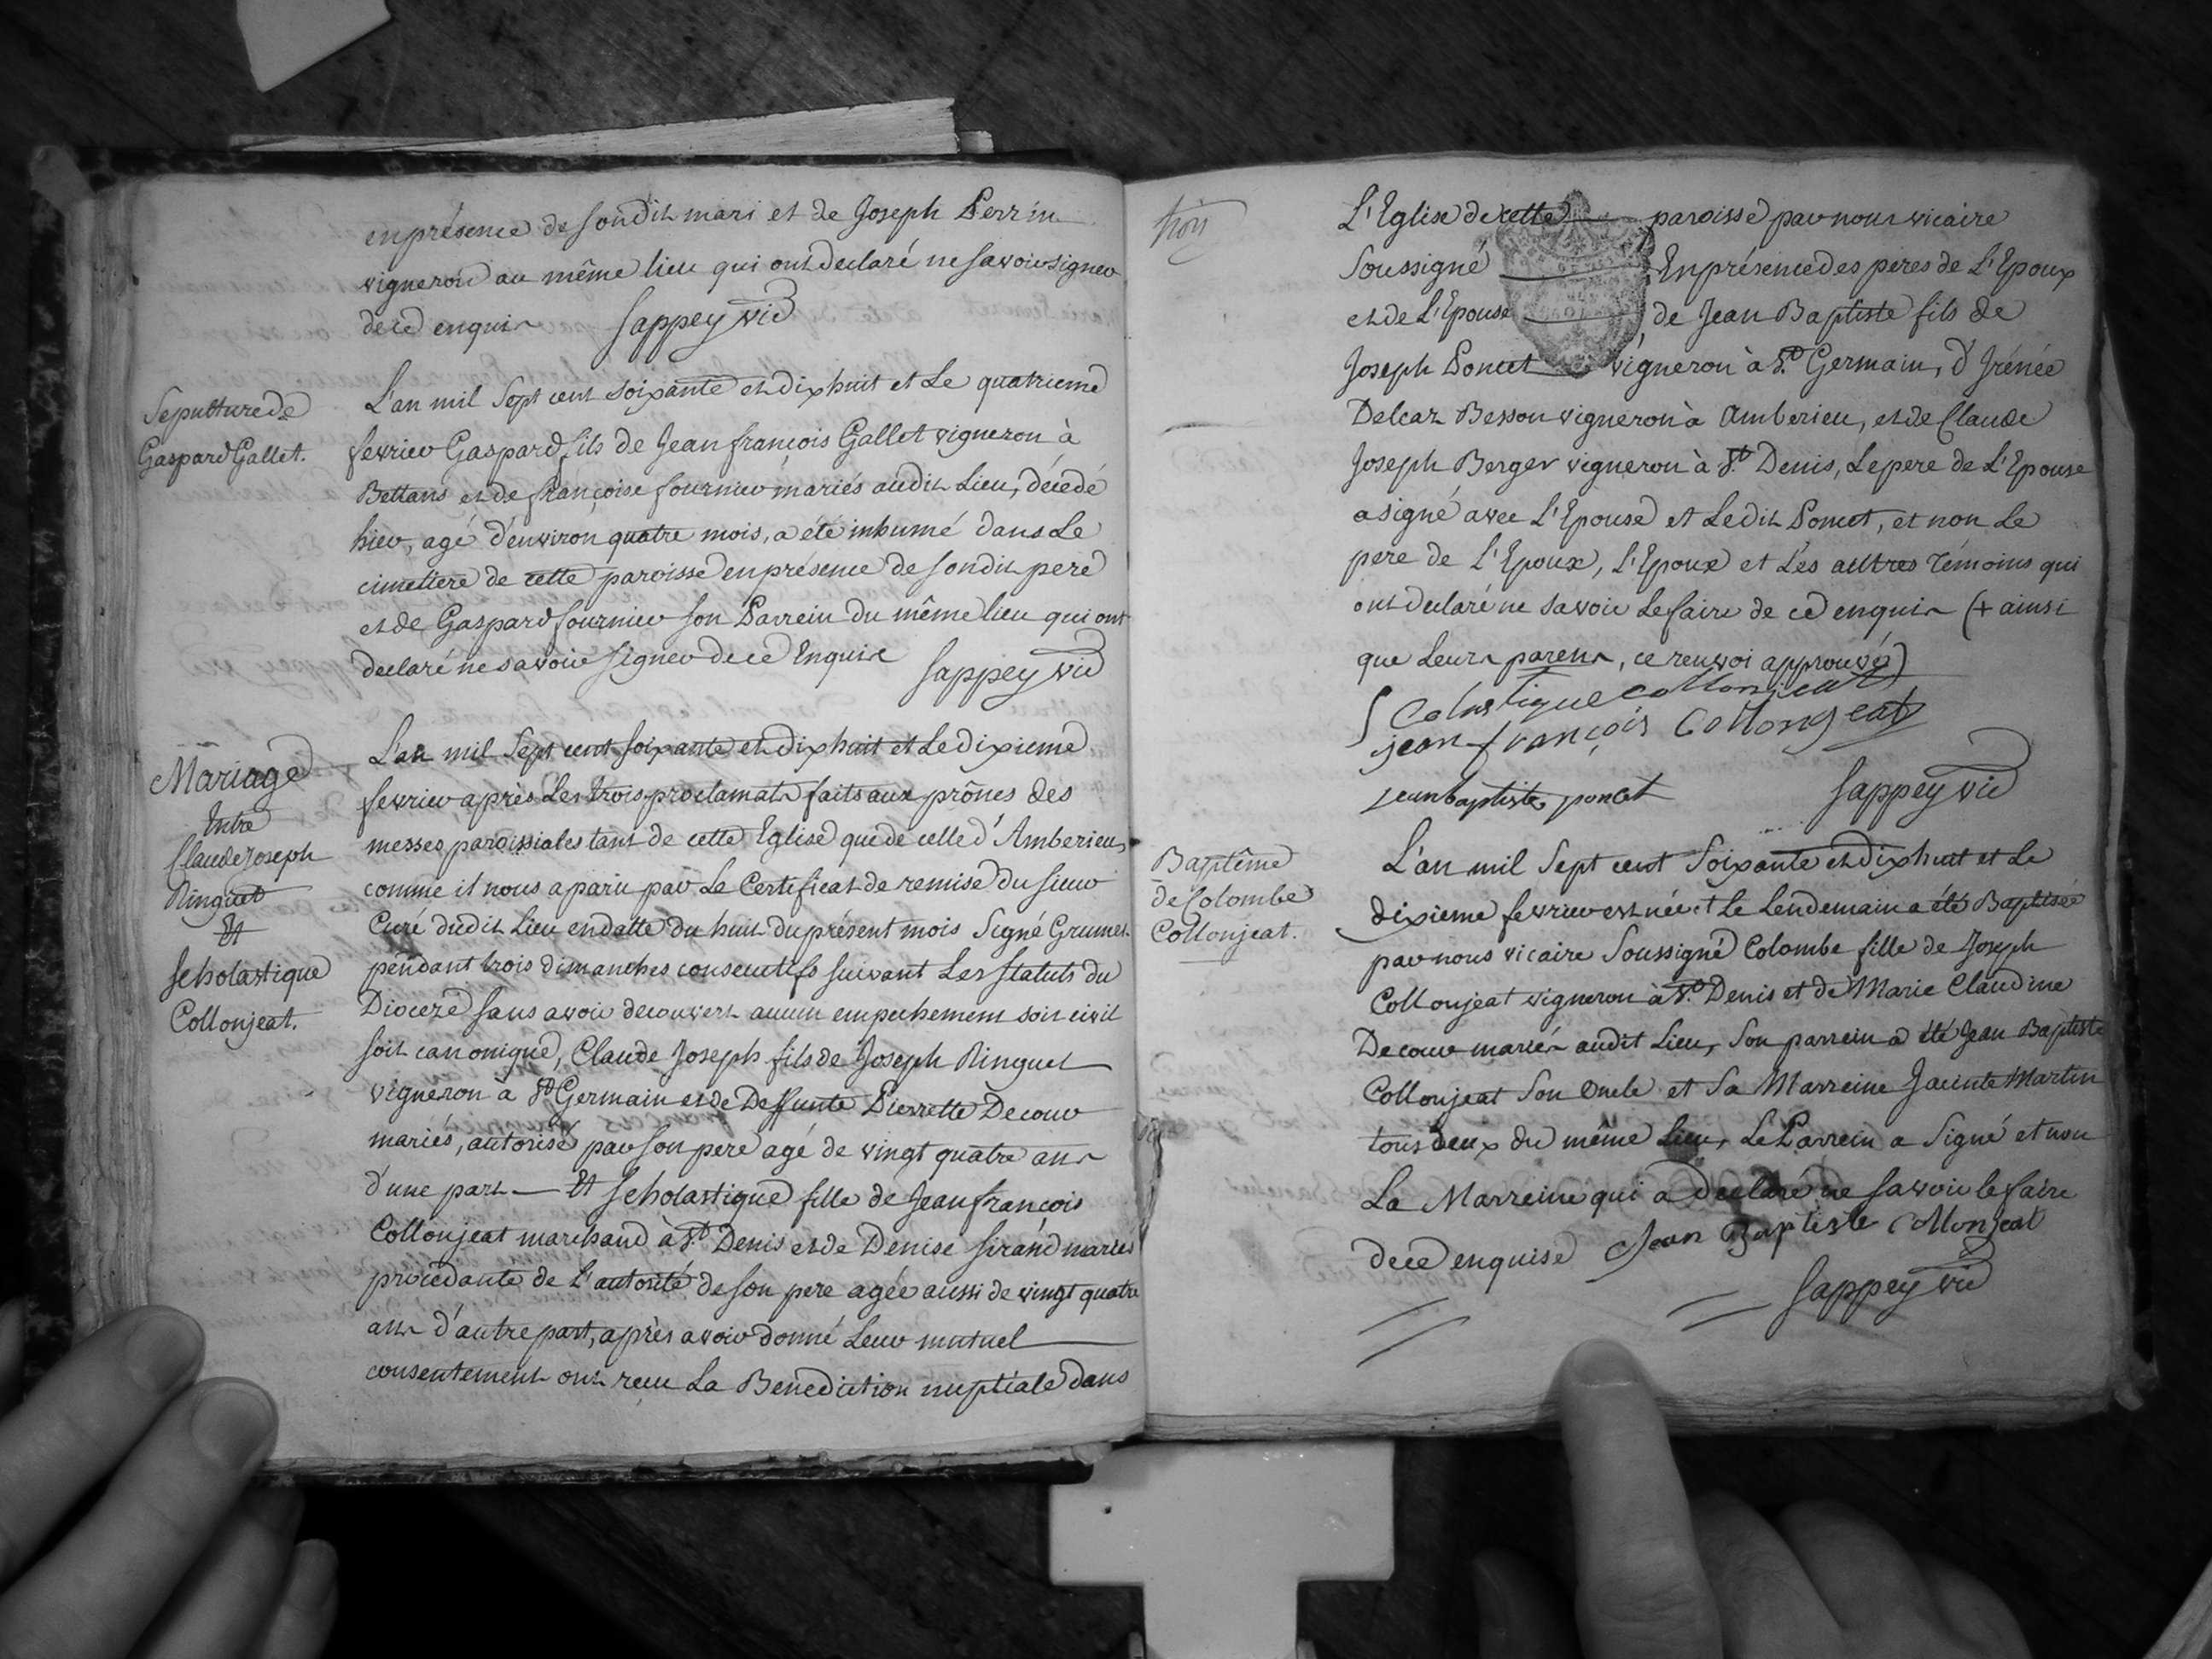 en présence de son dit mari et de Joseph Perrin
vigneron au même lieu qui ont declaré ne savoir signer
de ce enquis Sappey vic
Sepulture de
Gaspard Gallet.
L'an mil sept cent soixante et dix huit et le quatrieme
fevrier Gaspard fils de Jean françois Gallet vigneron à
Bettans et de françoise fournier mariés audit Lieu, décedé
hier, agé d'environ quatre mois, a été inhumé dans Le
cimetiere de cette paroisse en présence de son dit pere
et de Gaspard fournier son Parrein du même lieu qui ont
declaré ne savoir signer de ce Enquis Sappey vic
Mariage
Entre
Claude Joseph
Ringuet
Et
Scholastique
Collonjeat.
L'an mil sept cent soixante et dix huit et Le dixieme
fevrier après Les trois proclamats faits aux prônes des
messes paroissiales tant de cette Eglise que de celle d'Amberieu,
comme il nous a paru par Le Certificat de remise du sieur
Curé dudit Lieu en datte du huit du présent mois Signé Grumet
pendant trois dimanches consecutifs suivant Les statuts du
Dioceze sans avoir decouvert aucun empechement soit civil
soit canonique, Claude Joseph fils de Joseph Ringuet
vigneron à St Germain et de Deffunte Pierrette Decour
mariés, autorisé par son pere agé de vingt quatre ans
d'une part — Et Scholastique fille de Jean françois
Collonjeat marchand à St Denis et de Denise Sirand mariés
procedante de L'autorité de son pere agée aussi de vingt quatre
ans d'autre part, après avoir donné Leur mutuel
consentement ont reçu La Benediction nuptiale dans
L'Eglise de cette paroisse par nous vicaire
Soussigné En présence des peres de L'Epoux
et de L'Epouse de Jean Baptiste fils de
Joseph Poncet vigneron à St Germain, d'Irénée
Delcar Besson vigneron à Amberieu, et de Claude
Joseph Berger vigneron à St Denis, Le pere de L'Epouse
a signé avec L'Epouse et Ledit Poncet, et non Le
pere de L'Epoux, L'Epoux et Les autres témoins qui
ont declaré ne savoir Le faire de ce enquis (+ ainsi
que Leurs parens, ce renvoi approuvé)
Scolastique collonjeat
jean françois Collongeat
jean baptiste poncet Sappey vic
Baptême
de Colombe
Collonjeat.
L'an mil Sept cent Soixante et dix huit et Le
dixieme fevrier est née et Le Lendemain a été Baptisée
par nous vicaire Soussigné Colombe fille de Joseph
Collonjeat vigneron à St Denis et de Marie Claudine
Decour mariés audit Lieu, Son parrein a été Jean Baptiste
Collonjeat Son Oncle et Sa Marreine Jacinte Martin
tous deux du même Lieu, Le Parrein a Signé et non
La Marreine qui a declaré ne savoir le faire
de ce enquise Jean Baptiste Collonjeat
Sappey vic